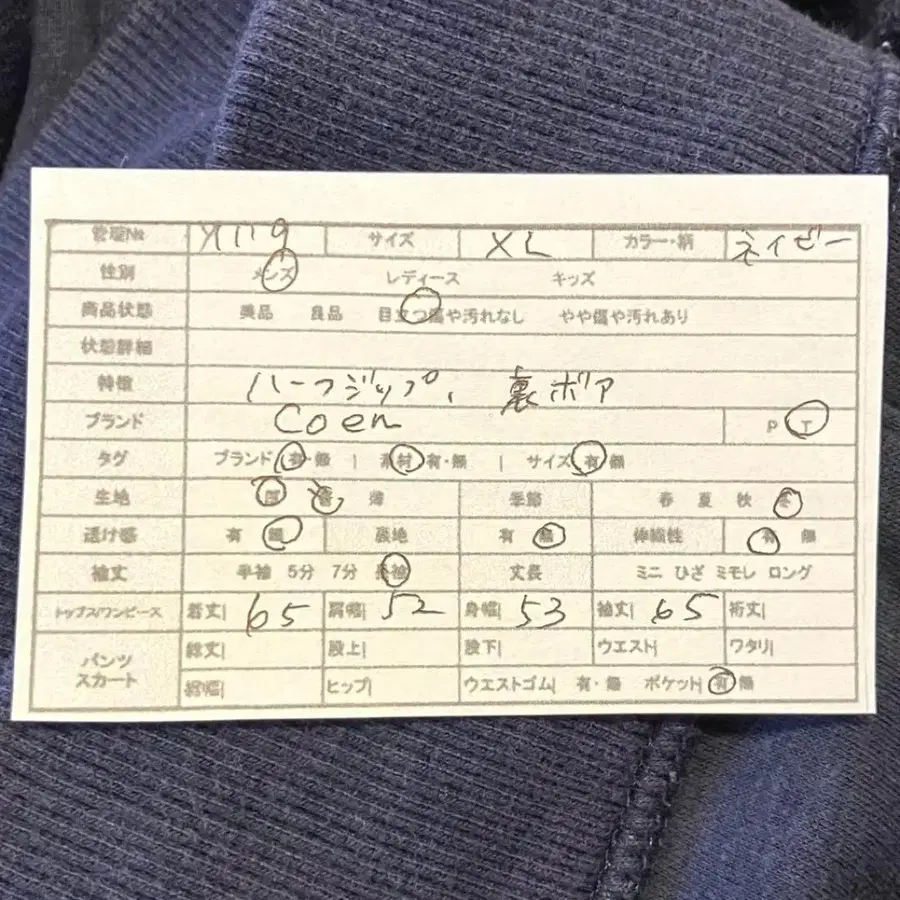 管理No サイズ XL カラー・柄 ネイビー
性別 メンズ レディース キッズ
商品状態 美品 良品 目立つ傷や汚れなし やや傷や汚れあり
状態詳細
特徴 ハーフジップ、裏ボア
ブランド coen P T
タグ ブランド 有・無 | 素材 有・無 | サイズ 有 無
生地 厚 普 薄 季節 春 夏 秋 冬
透け感 有 無 裏地 有 無 伸縮性 有 無
袖丈 半袖 5分 7分 長袖 丈長 ミニ ひざ ミモレ ロング
トップス/ワンピース 着丈| 65 肩幅| 52 身幅| 53 袖丈| 65 裄丈|
パンツ スカート 総丈| 股上| 股下| ウエスト| ワタリ|
裾幅| ヒップ| ウエストゴム| 有・無 ポケット| 有 無